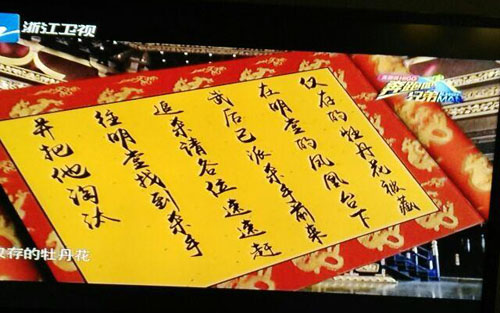 浙江卫视
奔跑吧
兄弟
仅存的牡丹花被藏
在明堂的凤凰台下
武后已派杀手前来
追杀请各位速速赶
往明堂找到杀手
并把他淘汰
存的牡丹花